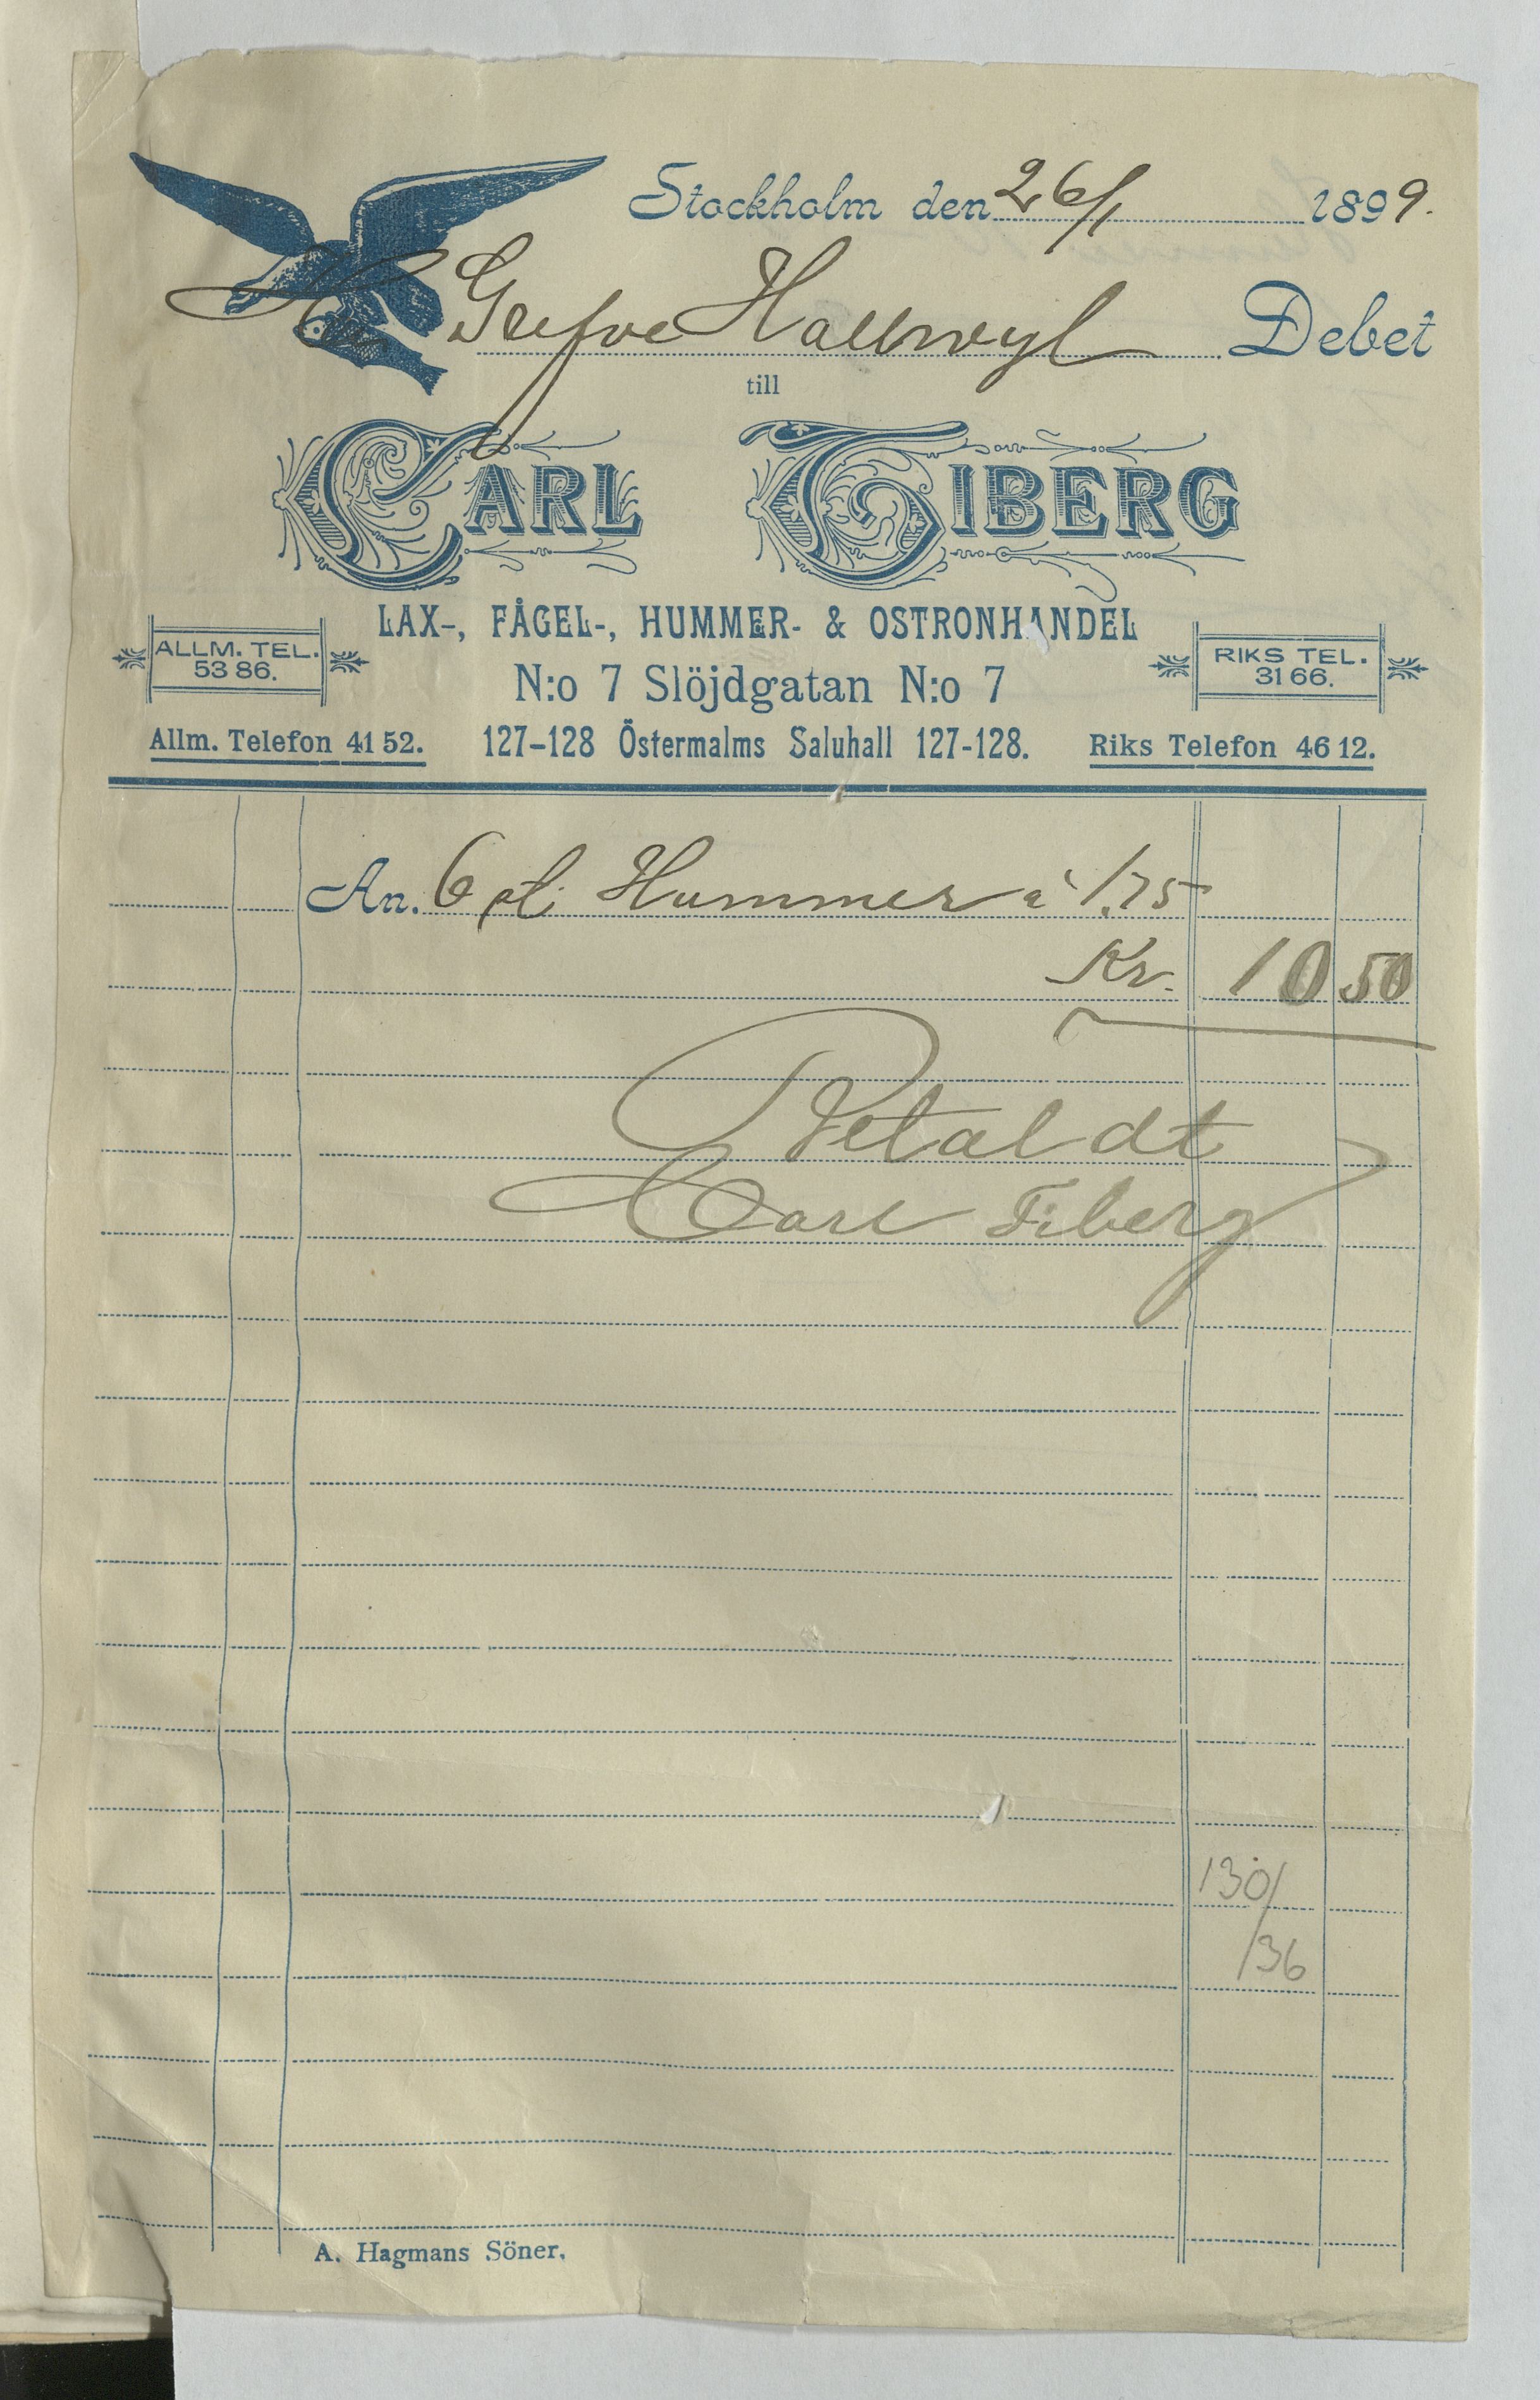 Stockholm den 26/1 1899.
Herr Grefve Hallwyl Debet
till
CARL TIBERG
LAX-, FÅGEL-, HUMMER- & OSTRONHANDEL
ALLM. TEL. 53 86.
N:o 7 Slöjdgatan N:o 7
RIKS TEL. 31 66.
Allm. Telefon 41 52. 127-128 Östermalms Saluhall 127-128. Riks Telefon 46 12.
An. 6 st. Hummer à 1.75
Kr. 10 50
Betaldt
Carl Tiberg
130/
/36
A. Hagmans Söner.